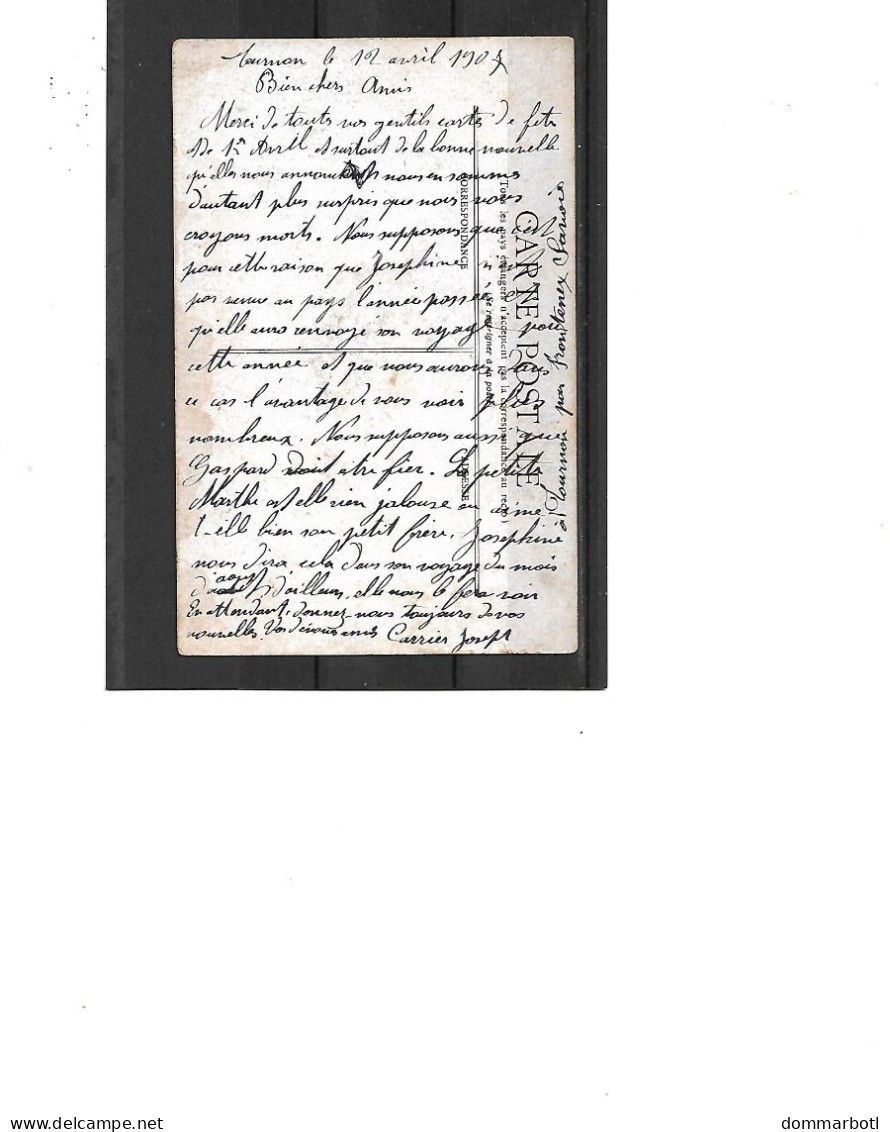 Tournon le 12 avril 1907
Bien chers Amis
Merci de touts vos gentils cartes de fete
de 1er Avril et surtout de la bonne nouvelle
qu'elles nous annoncent nous en sommes
d'autant plus surpris que nous vous
croyons morts. Nous supposons que c'est
pour cette raison que Josephine n'est
pas venue au pays l'année passée et
qu'elle aura renvoyé son voyage pour
cette année et que nous aurons dans
ce cas l'avantage de vous voir plus
nombreux. Nous supposons aussi que
Gaspard doit etre fier. La petite
Marthe est elle rien jalouse ou aime
t-elle bien son petit frère. Josephine
nous dira cela dans son voyage du mois
d'aout d'ailleurs elle nous le fera voir
En attendant, donnez-nous toujours de vos
nouvelles. Vos dévoués amis Carrier Joseph
à Tournon par Frontenex Savoie
CARTE POSTALE
Tous les pays étrangers n'acceptent pas la correspondance au recto
(Se renseigner à la poste)
CORRESPONDANCE
ADRESSE
dommarbotl